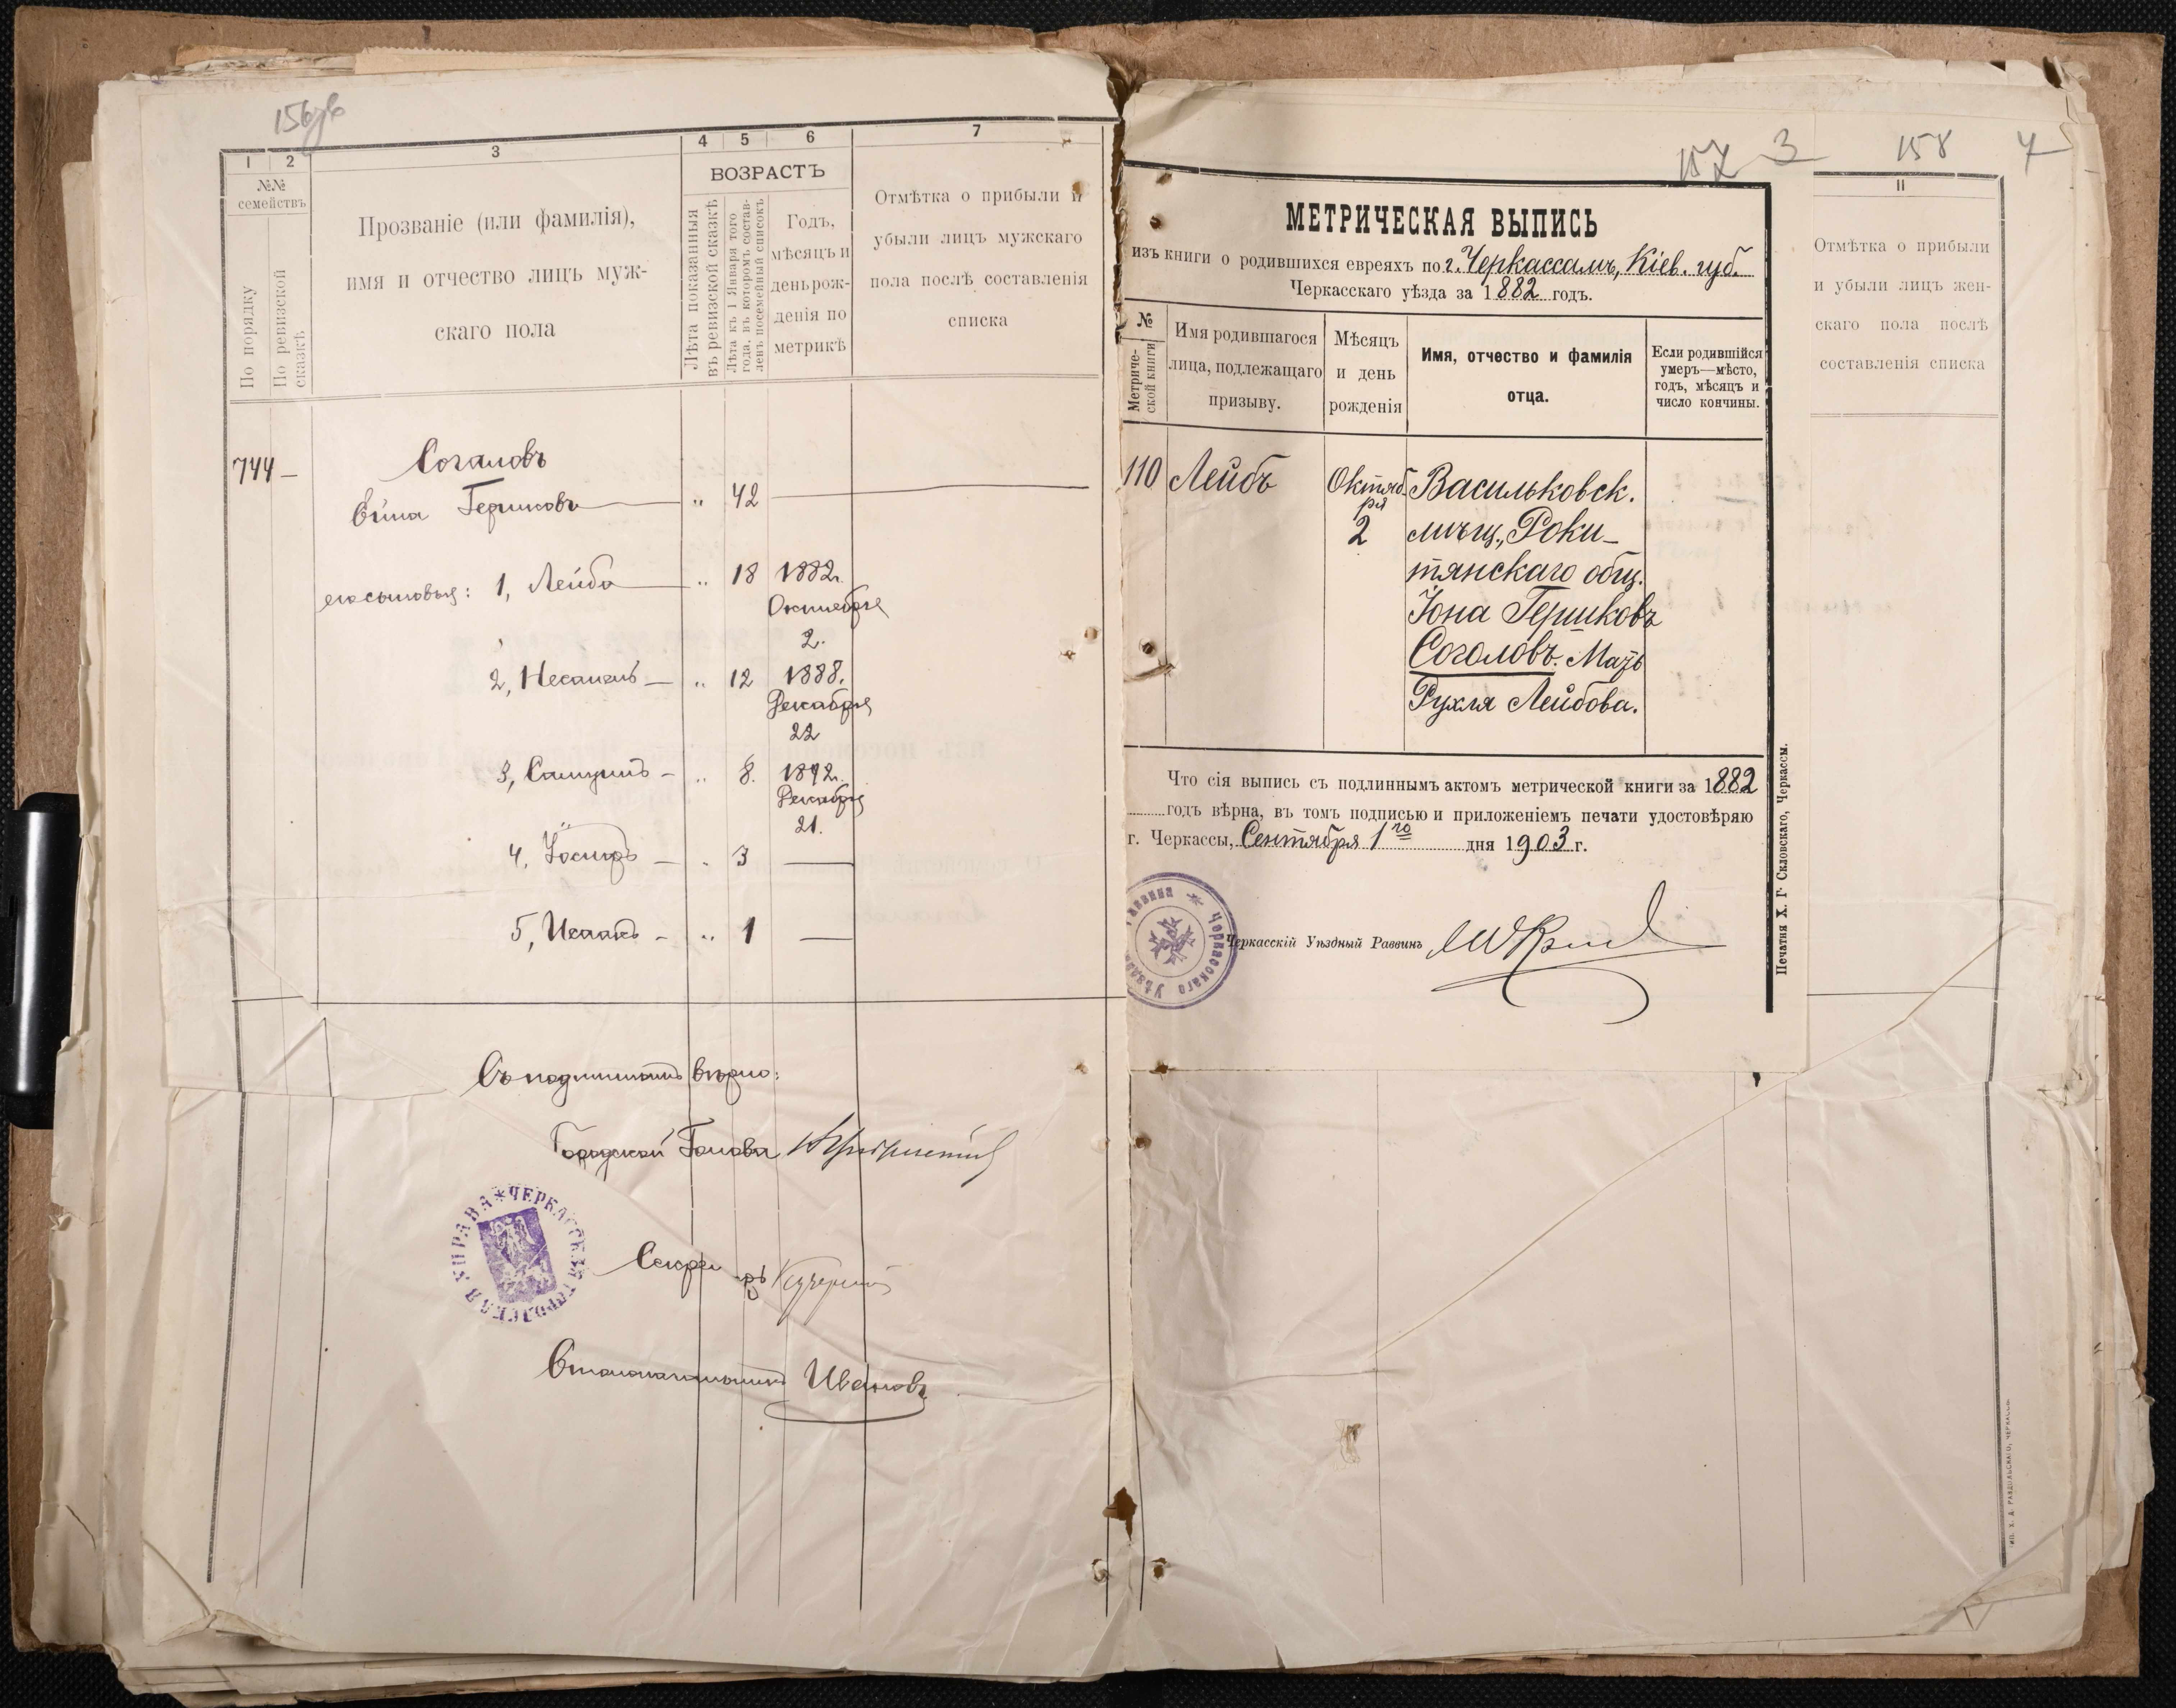 1
2
3
4
5
6
7
№№
семействъ
По порядку
По ревизской
сказкѣ
Прозваніе (или фамилія),
имя и отчество лицъ муж-
скаго пола
ВОЗРАСТЪ
Лѣта показанныя
въ ревизской сказкѣ
Лѣта къ 1 Января того
года, въ которомъ состав-
ленъ посемейный списокъ
Годъ,
мѣсяцъ и
день рож-
денія по
метрикѣ
Отмѣтка о прибыли и
убыли лицъ мужскаго
пола послѣ составленія
списка
Соголовъ
744 —
Гершковъ — " 42 —
его сыновья: 1, Лейба — " 18 1882 г.
Октября
2.
2, — " 12 1888.
Декабря
22
3, — " 8. 1892 г.
Декабря
21.
4, Іосифъ — " 3 —
5, Исаакъ — " 1 —
Съ подлиннымъ вѣрно:
Городской Голова
ЧЕРКАССКАЯ ГОРОДСКАЯ УПРАВА
Секре ръ
Столоначальникъ Ивановъ
157 3
МЕТРИЧЕСКАЯ ВЫПИСЬ
изъ книги о родившихся евреяхъ по г. Черкассамъ, Кіев. губ.
Черкасскаго уѣзда за 1882 годъ.
№
Метриче-
ской книги
Имя родившагося
лица, подлежащаго
призыву.
Мѣсяцъ
и день
рожденія
Имя, отчество и фамилія
отца.
Если родившійся
умеръ—мѣсто,
годъ, мѣсяцъ и
число кончины.
110 Лейбъ
Октяб-
ря
2
Васильковск.
мѣщ., Роки-
тянскаго общ.
Іона Гершковъ
Соголовъ. Мать
Рухля Лейбова.
Что сія выпись съ подлиннымъ актомъ метрической книги за 1882
годъ вѣрна, въ томъ подписью и приложеніемъ печати удостовѣряю
г. Черкассы, Сентября 1го дня 1903 г.
Черкасскаго Уѣзда
Черкасскій Уѣздный Раввинъ
Печатня Х. Г. Скловскаго, Черкассы.
158 4
11
Отмѣтка о прибыли
и убыли лицъ жен-
скаго пола послѣ
составленія списка